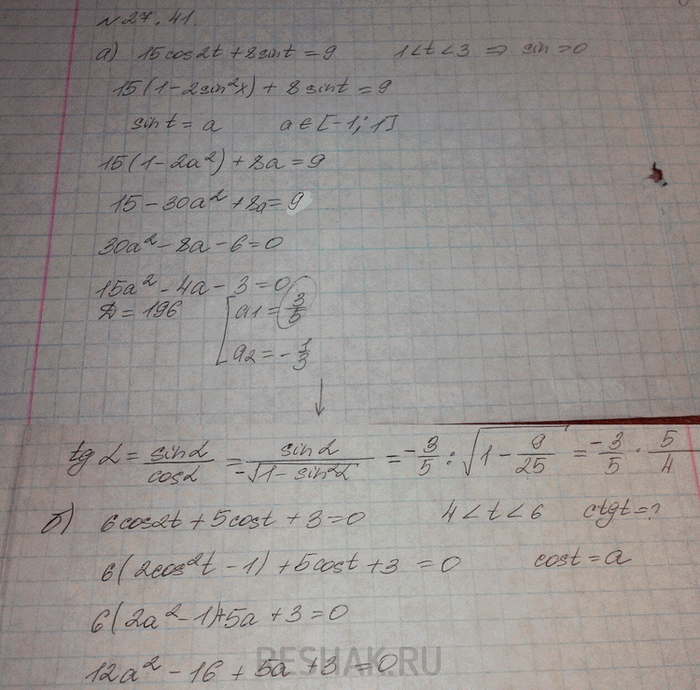 № 27.41.
а) 15cos2t + 8sint = 9 1<t<3 ⇒ sin>0
15(1-2sin²x) + 8sint = 9
sint = a a∈[-1;1]
15(1-2a²) + 8a = 9
15 - 30a² + 8a = 9
30a² - 8a - 6 = 0
15a² - 4a - 3 = 0
D = 196 [a₁ = 3/5
a₂ = -1/3
tg α = sinα/cosα = sinα/-√(1-sin²α) = -3/5 : √(1 - 9/25) = -3/5 · 5/4
б) 6cos2t + 5cost + 3 = 0 4<t<6 ctgt = ?
6(2cos²t - 1) + 5cost + 3 = 0 cost = a
6(2a² - 1) + 5a + 3 = 0
12a² - 16 + 5a + 3 = 0
RESHAK.RU